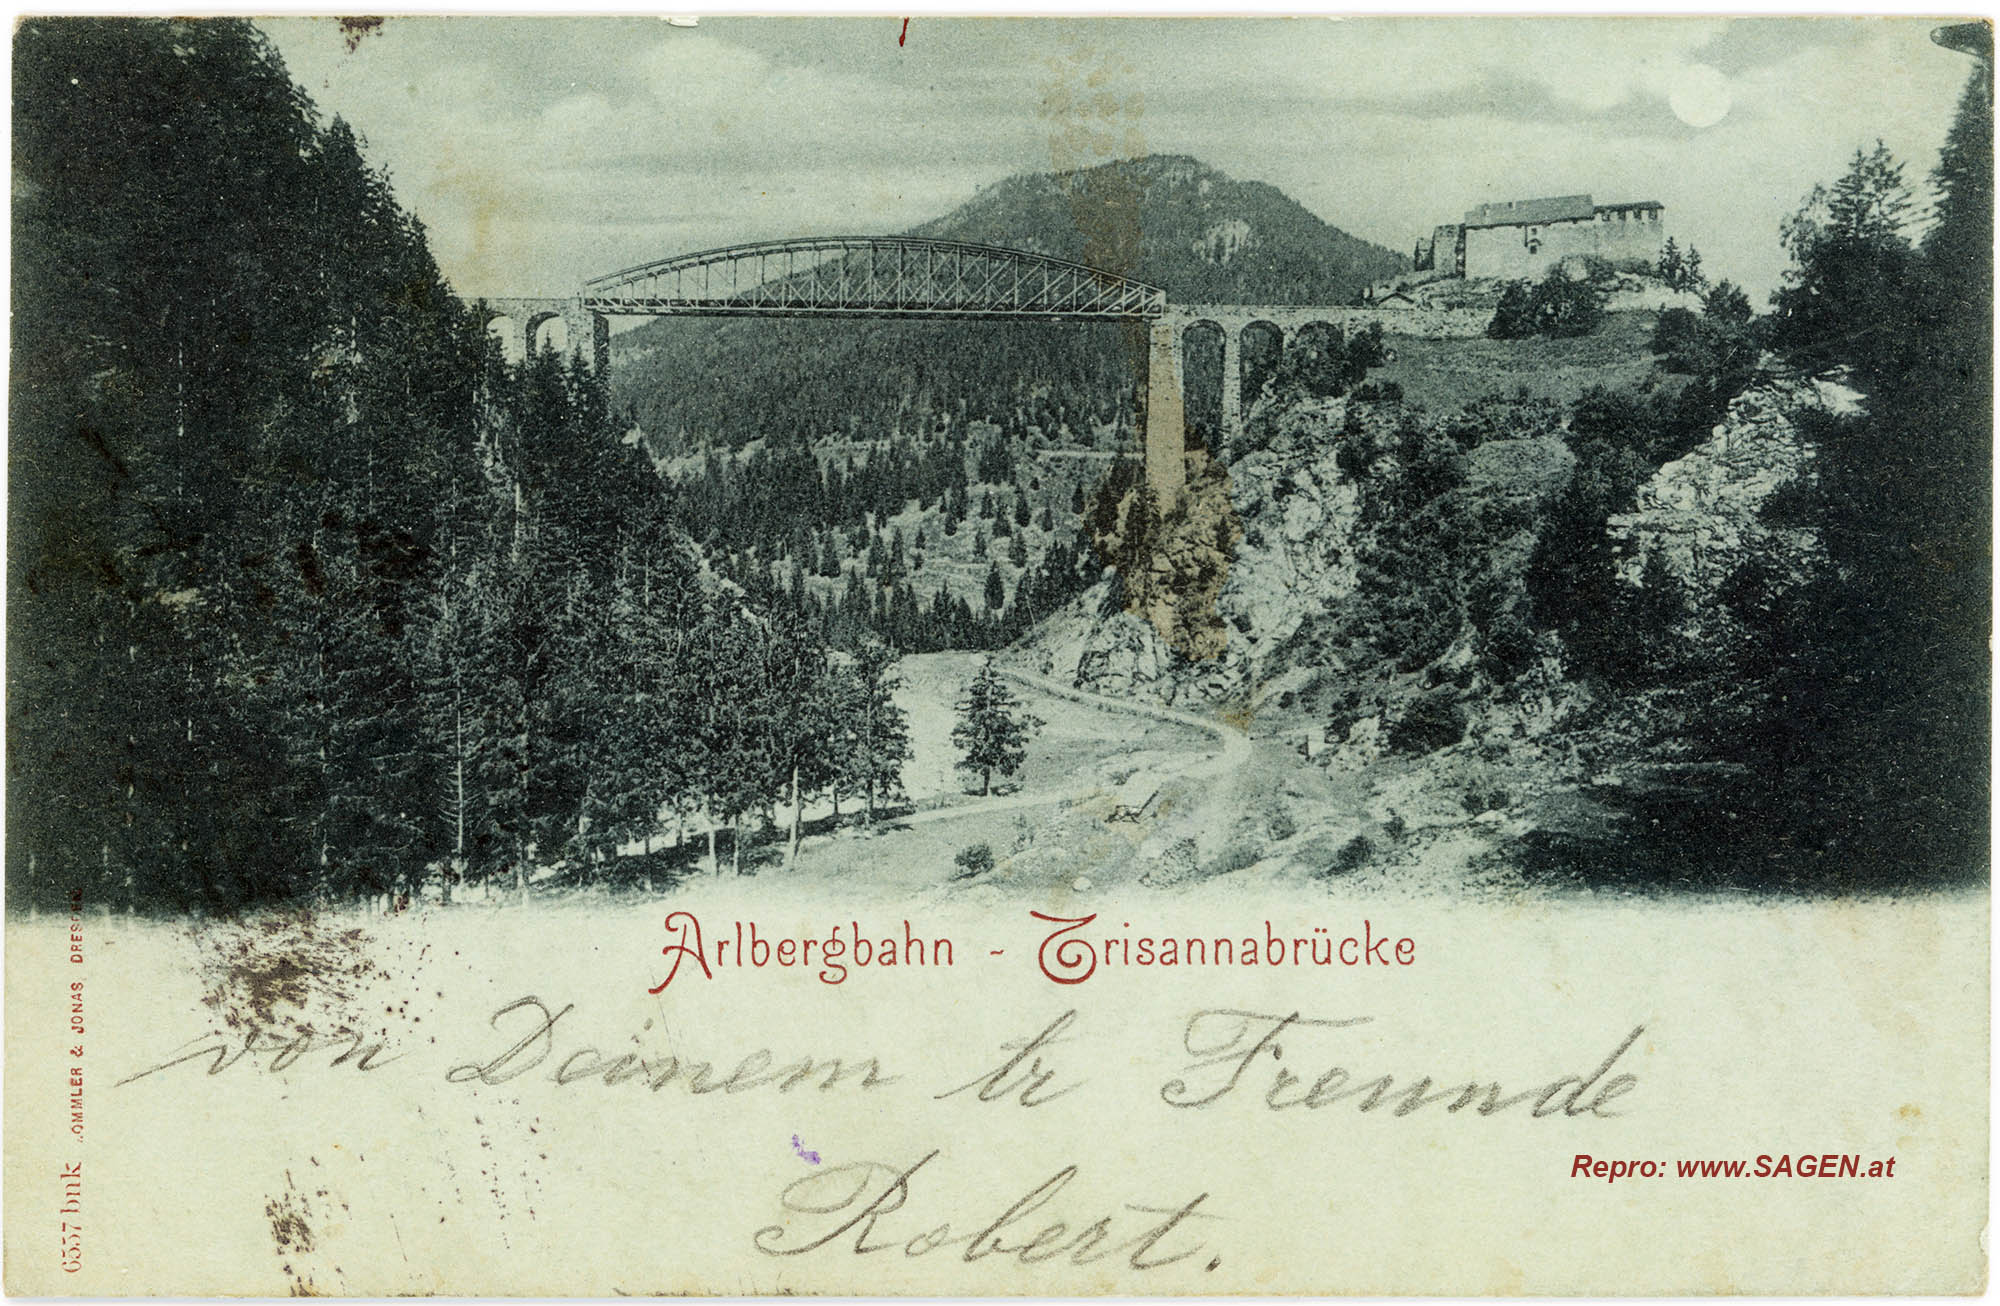 Arlbergbahn - Trisannabrücke
von Deinem tr Freunde
Robert.
Repro: www.SAGEN.at
6557 bnk OMMLER & JONAS, DRESDEN